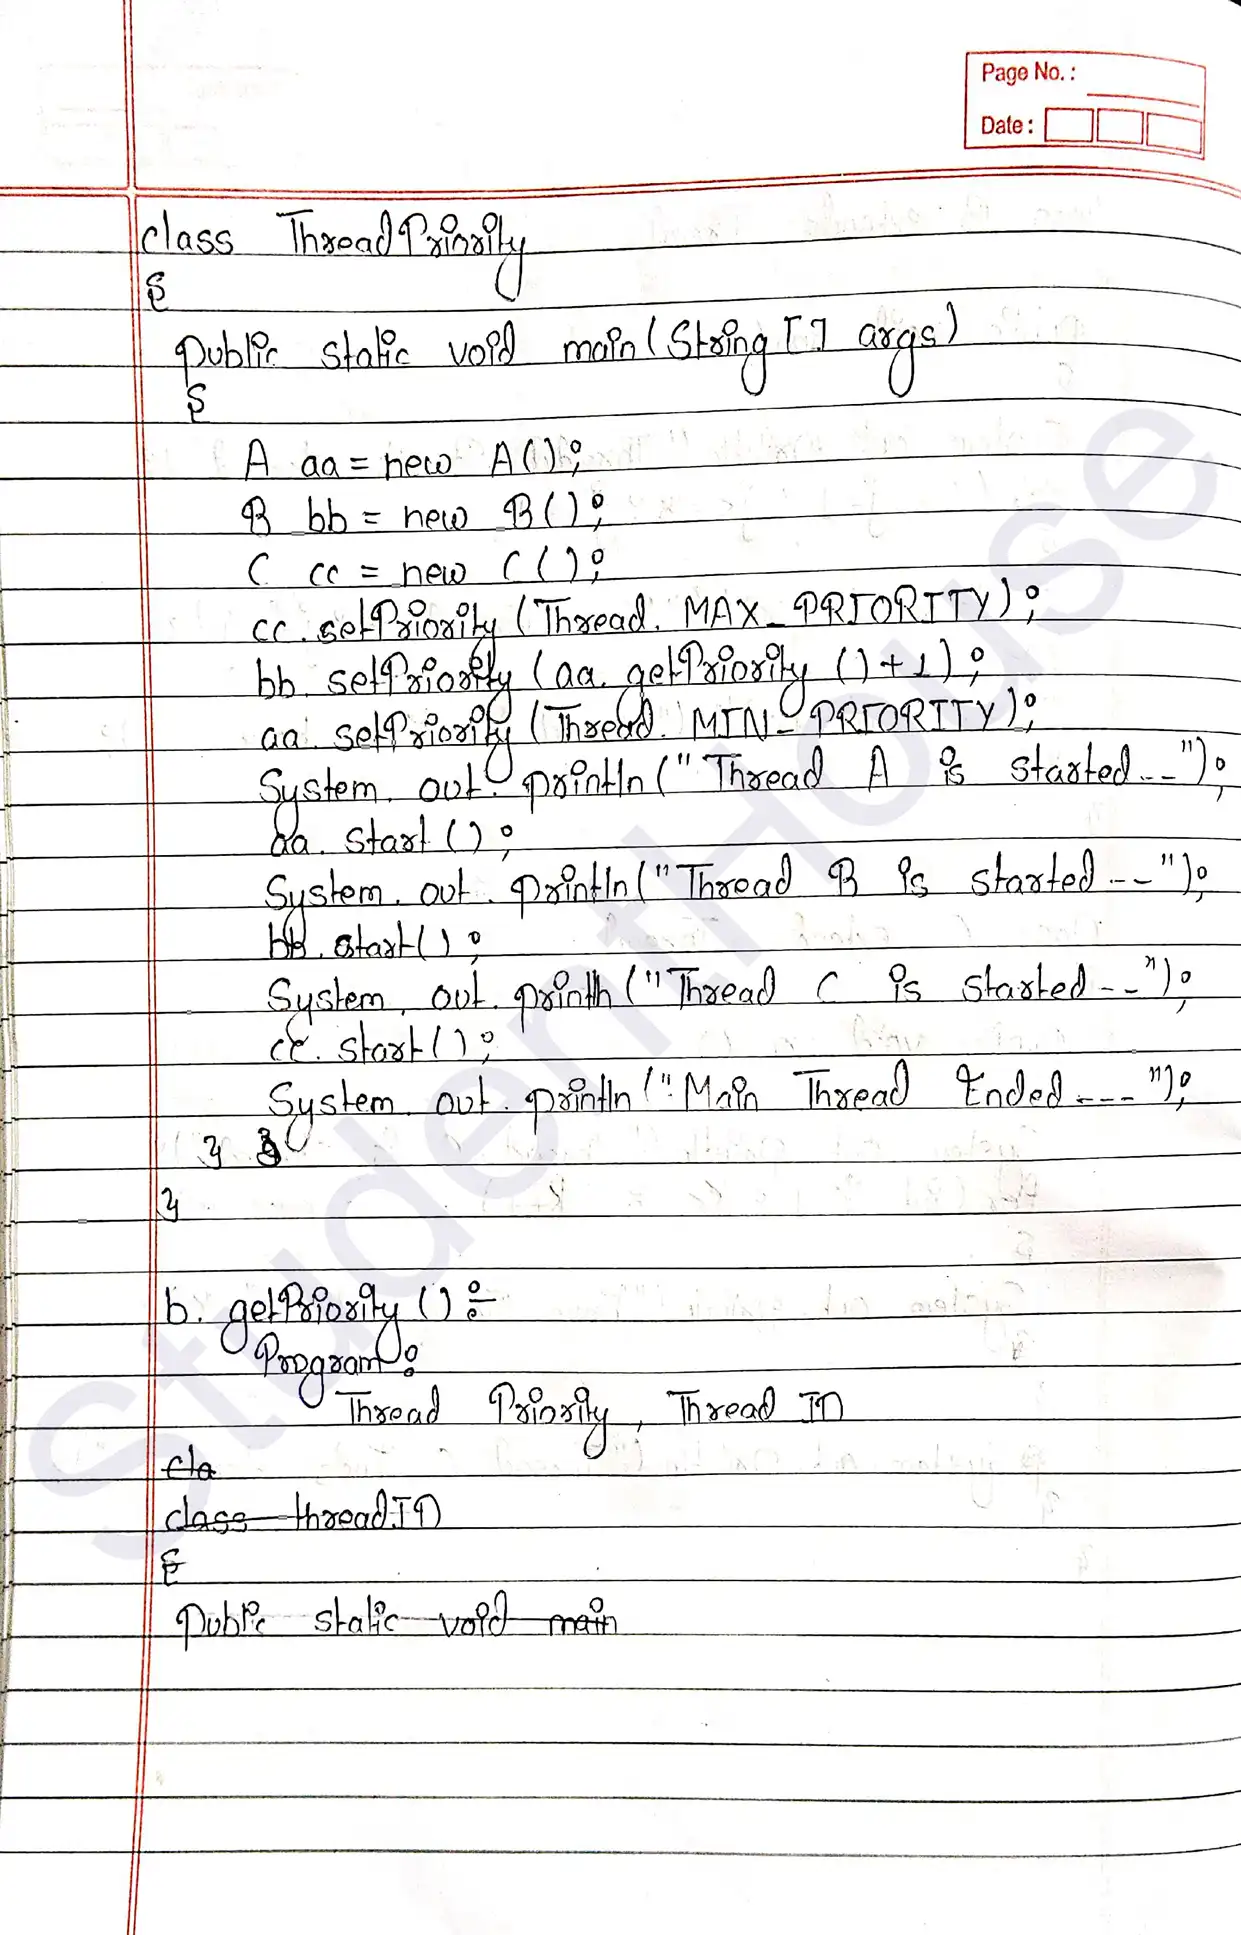 Page No. :
Date :
class ThreadPriority
{
public static void main(String [] args)
{
A aa = new A();
B bb = new B();
C cc = new C();
cc. setPriority (Thread. MAX_PRIORITY);
bb. setPriority (aa. getPriority () + 1);
aa. setPriority (Thread. MIN_PRIORITY);
System. out. println (" Thread A is started -- ");
aa. start ();
System. out. println (" Thread B is started -- ");
bb. start ();
System. out. println (" Thread C is started -- ");
cc. start ();
System. out. println (" Main Thread Ended --- ");
}
}
b. getPriority () :-
Program :
Thread Priority, Thread ID
cla
class threadID
{
public static void main
StudentHouse